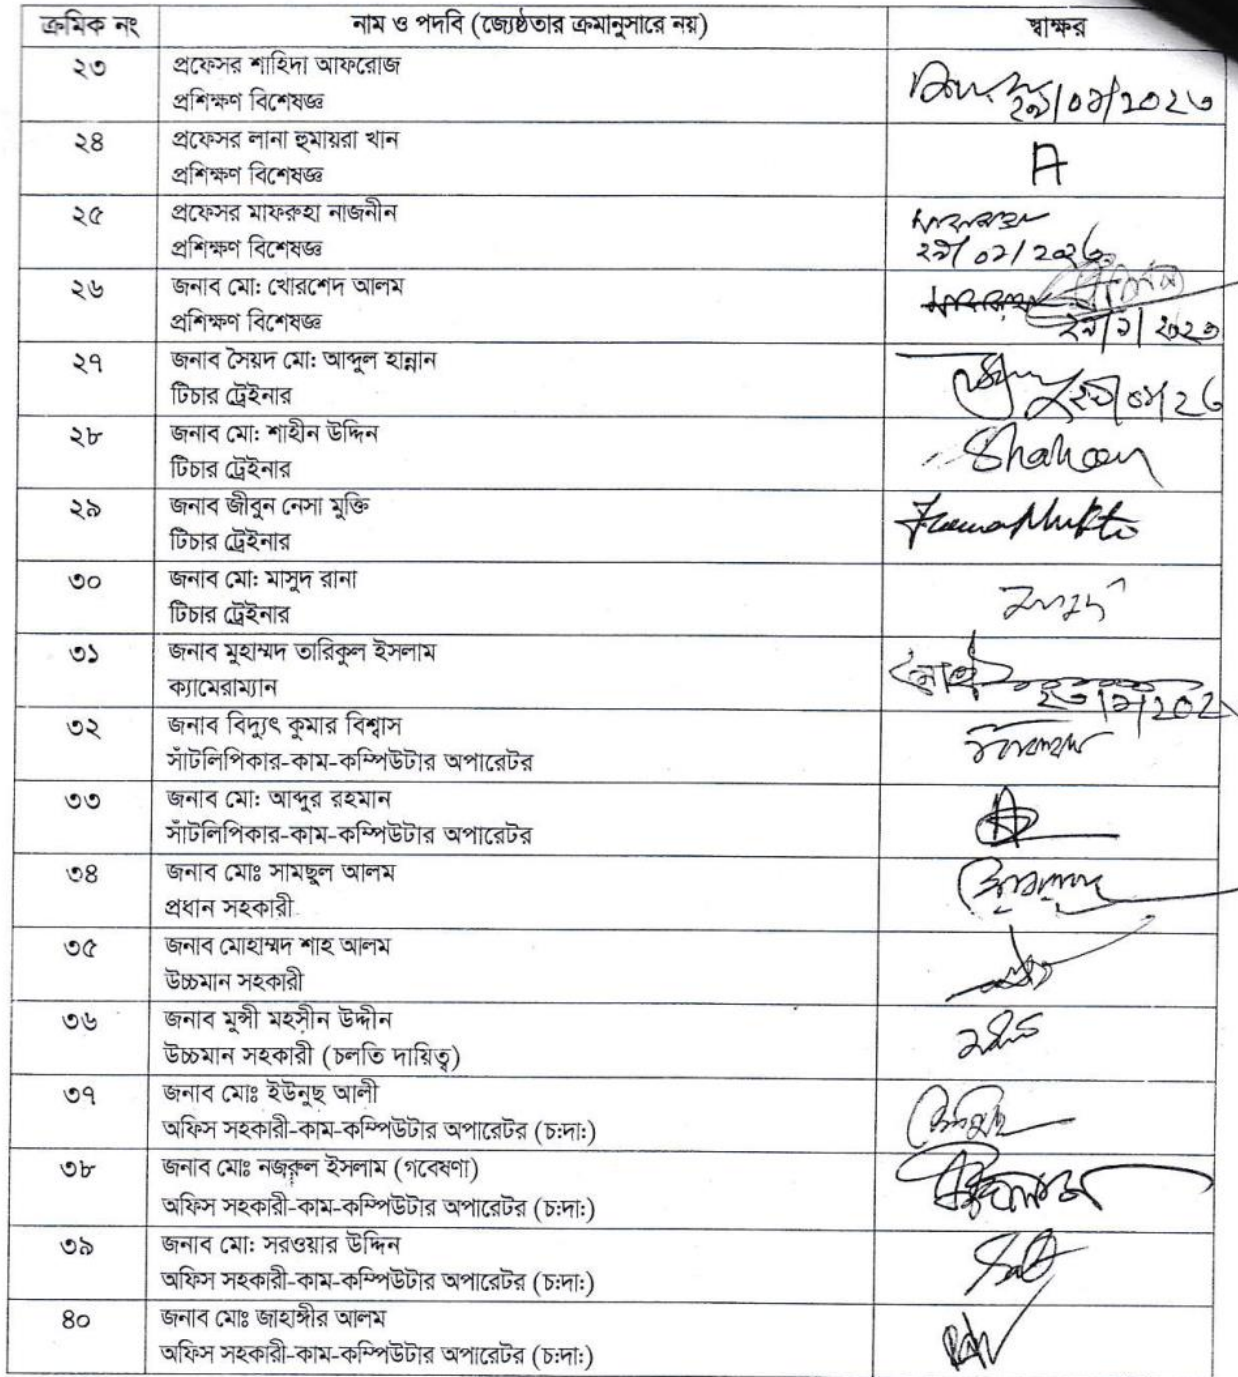 ক্রমিক নং নাম ও পদবি (জ্যেষ্ঠতার ক্রমানুসারে নয়) স্বাক্ষর
২৩ প্রফেসর শাহিদা আফরোজ
প্রশিক্ষণ বিশেষজ্ঞ
২৪ প্রফেসর লানা হুমায়রা খান
প্রশিক্ষণ বিশেষজ্ঞ
A
২৫ প্রফেসর মাফরুহা নাজনীন
প্রশিক্ষণ বিশেষজ্ঞ
২৬ জনাব মো: খোরশেদ আলম
প্রশিক্ষণ বিশেষজ্ঞ
২৭ জনাব সৈয়দ মো: আব্দুল হান্নান
টিচার ট্রেইনার
২৮ জনাব মো: শাহীন উদ্দিন
টিচার ট্রেইনার
Shaheen
২৯ জনাব জীবুন নেসা মুক্তি
টিচার ট্রেইনার
৩০ জনাব মো: মাসুদ রানা
টিচার ট্রেইনার
৩১ জনাব মুহাম্মদ তারিকুল ইসলাম
ক্যামেরাম্যান
৩২ জনাব বিদ্যুৎ কুমার বিশ্বাস
সাঁটলিপিকার-কাম-কম্পিউটার অপারেটর
৩৩ জনাব মো: আব্দুর রহমান
সাঁটলিপিকার-কাম-কম্পিউটার অপারেটর
৩৪ জনাব মোঃ সামছুল আলম
প্রধান সহকারী
৩৫ জনাব মোহাম্মদ শাহ আলম
উচ্চমান সহকারী
৩৬ জনাব মুন্সী মহসীন উদ্দীন
উচ্চমান সহকারী (চলতি দায়িত্ব)
৩৭ জনাব মোঃ ইউনুছ আলী
অফিস সহকারী-কাম-কম্পিউটার অপারেটর (চ:দা:)
৩৮ জনাব মোঃ নজরুল ইসলাম (গবেষণা)
অফিস সহকারী-কাম-কম্পিউটার অপারেটর (চ:দা:)
৩৯ জনাব মো: সরওয়ার উদ্দিন
অফিস সহকারী-কাম-কম্পিউটার অপারেটর (চ:দা:)
৪০ জনাব মোঃ জাহাঙ্গীর আলম
অফিস সহকারী-কাম-কম্পিউটার অপারেটর (চ:দা:)